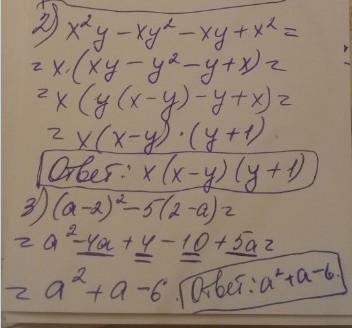 2) x²y - xy² - xy + x² =
= x·(xy - y² - y + x) =
= x(y(x-y) - y + x) =
= x(x-y)·(y+1)
Ответ: x(x-y)(y+1)
3) (a-2)² - 5(2-a) =
= a² - 4a + 4 - 10 + 5a =
= a² + a - 6. Ответ: a² + a - 6.